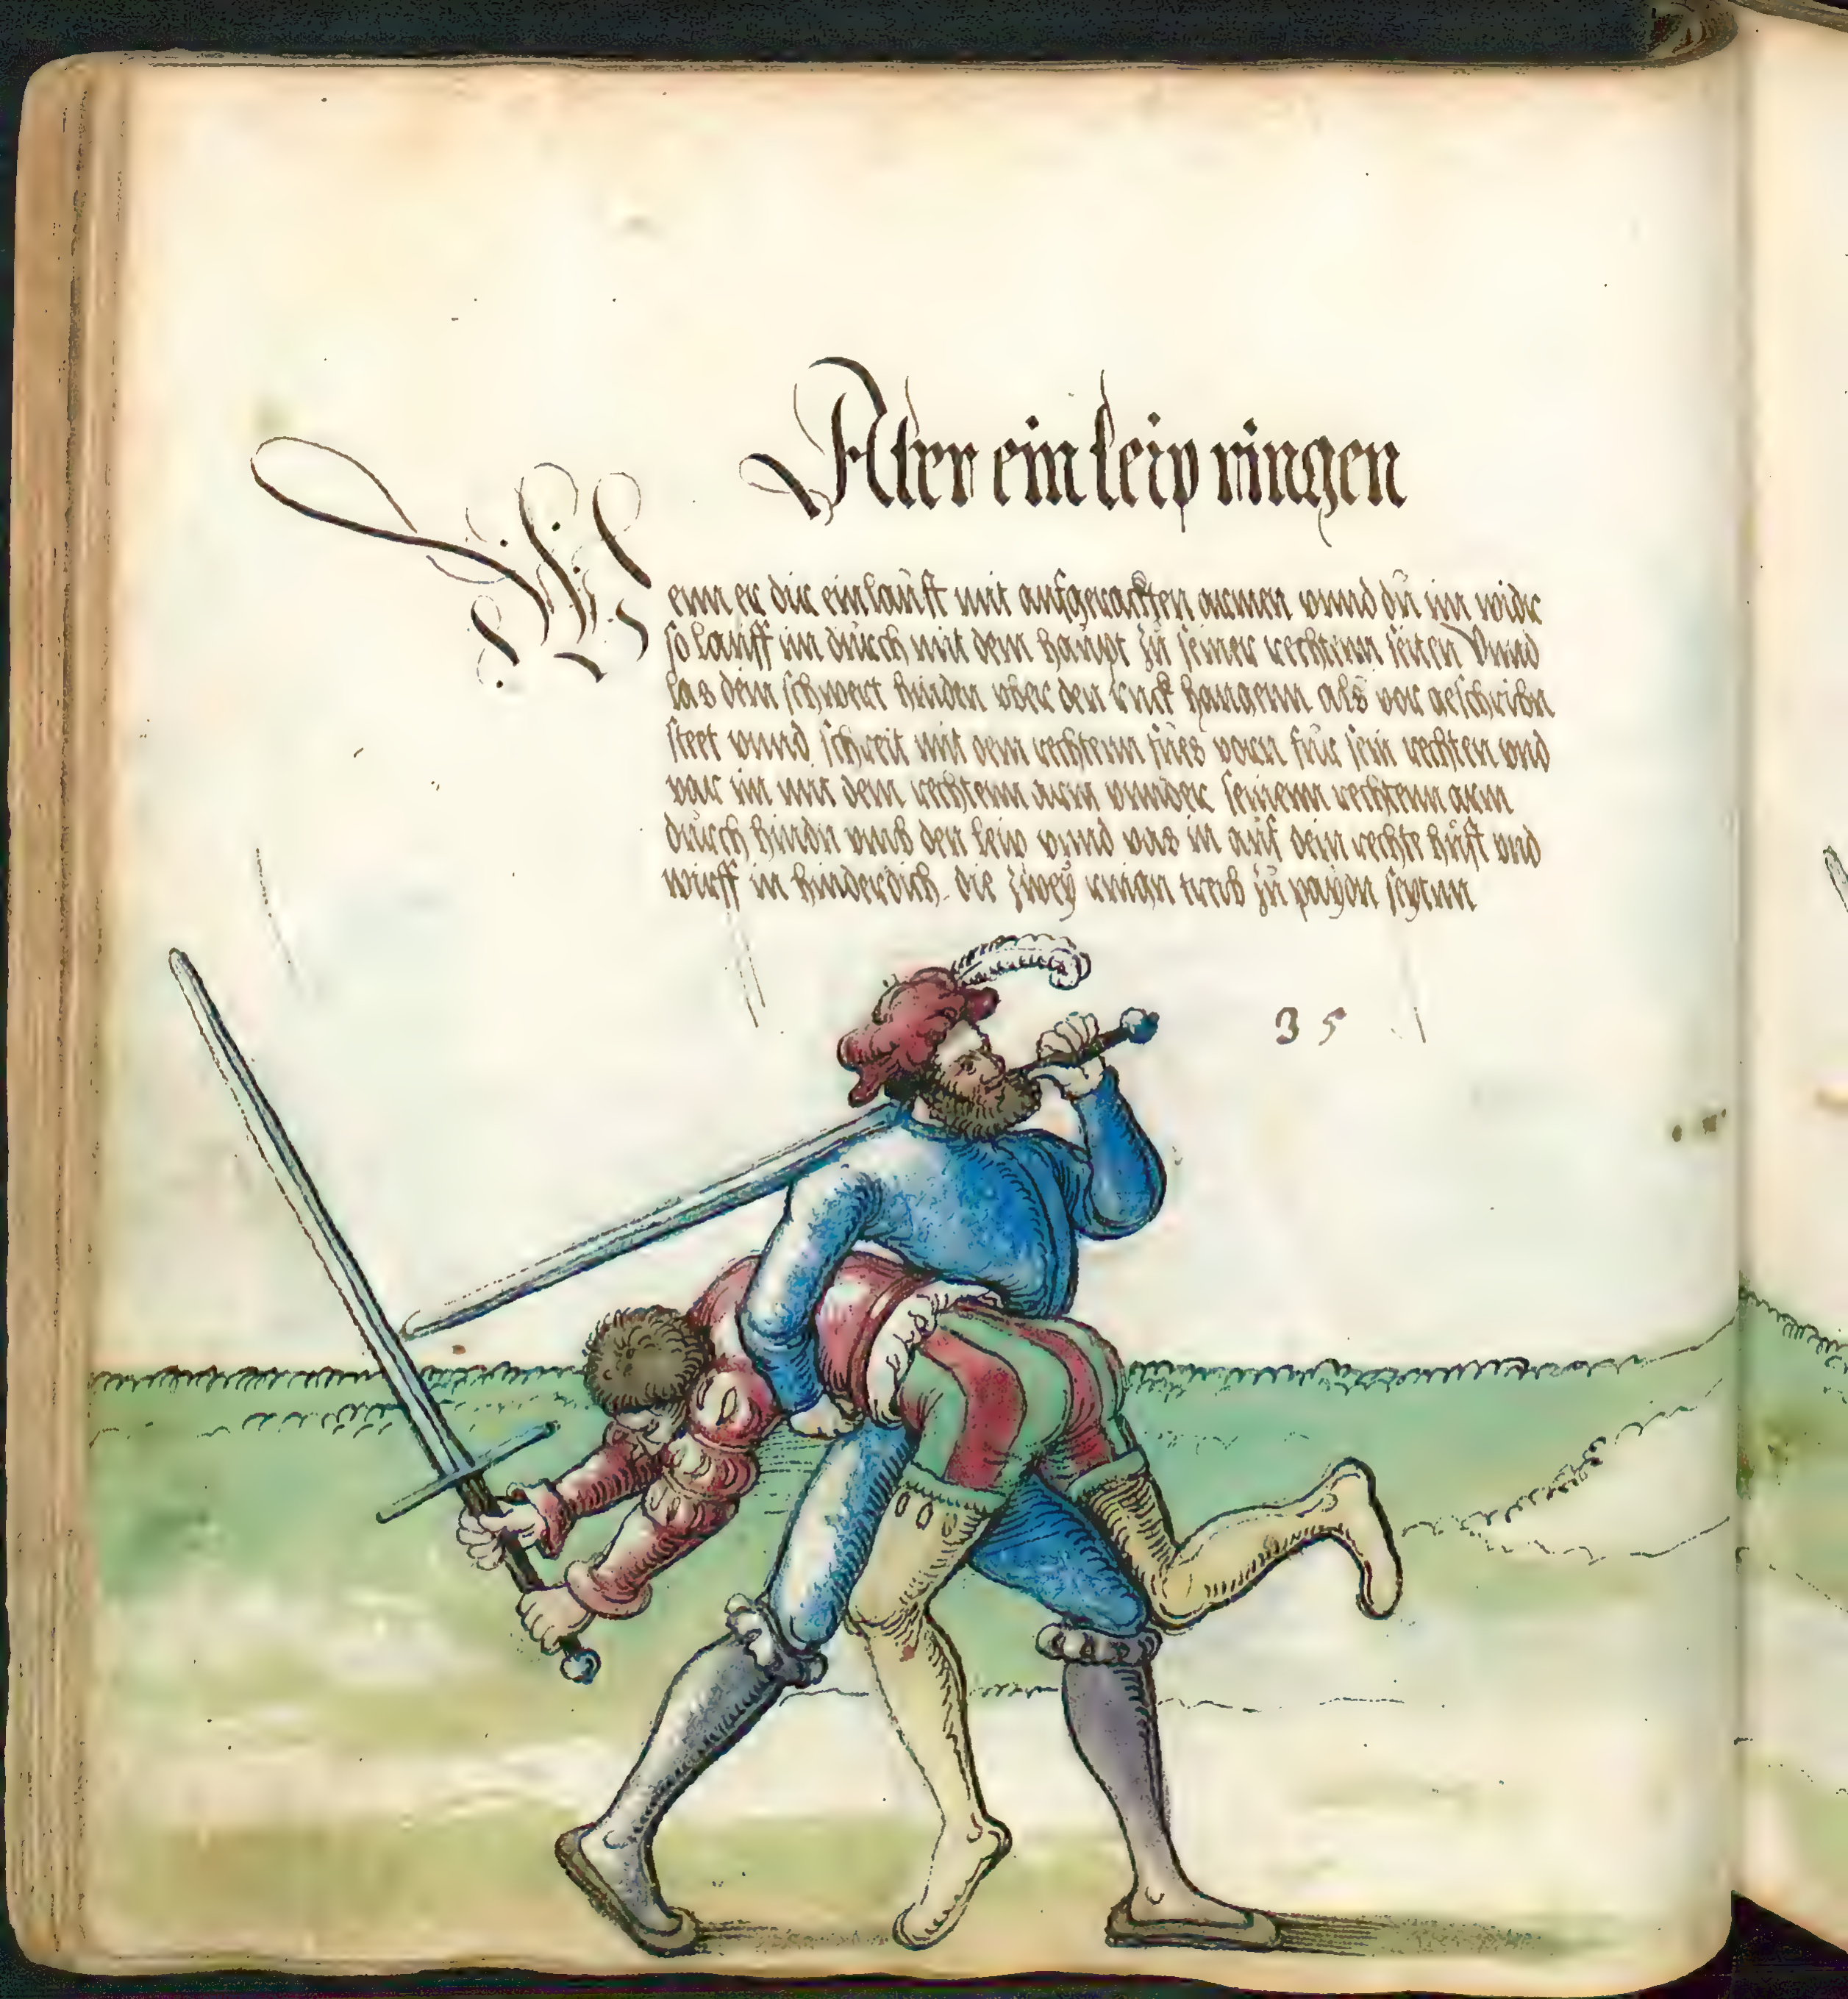 Aber ein leip ringen
Wenn er dir einlaufft mit aufgerackten armen vnnd dü im widr
so lauff im dürch mit dem haupt zü seiner rechtenn seiten Vnnd
las dein schwert hinden vber den ruck hangenn als vor geschribn
steet vnnd schreit mit dem rechtenn füs vorn für sein rechten vnd
var im mit dem rechtenn arm vnnder seinenn rechtenn arm
dürch hindn vmb den leip vnnd vas in auf dein rechte hüft vnd
wirff in hinderdich die zwey ringn treib zü payden seytnn
35